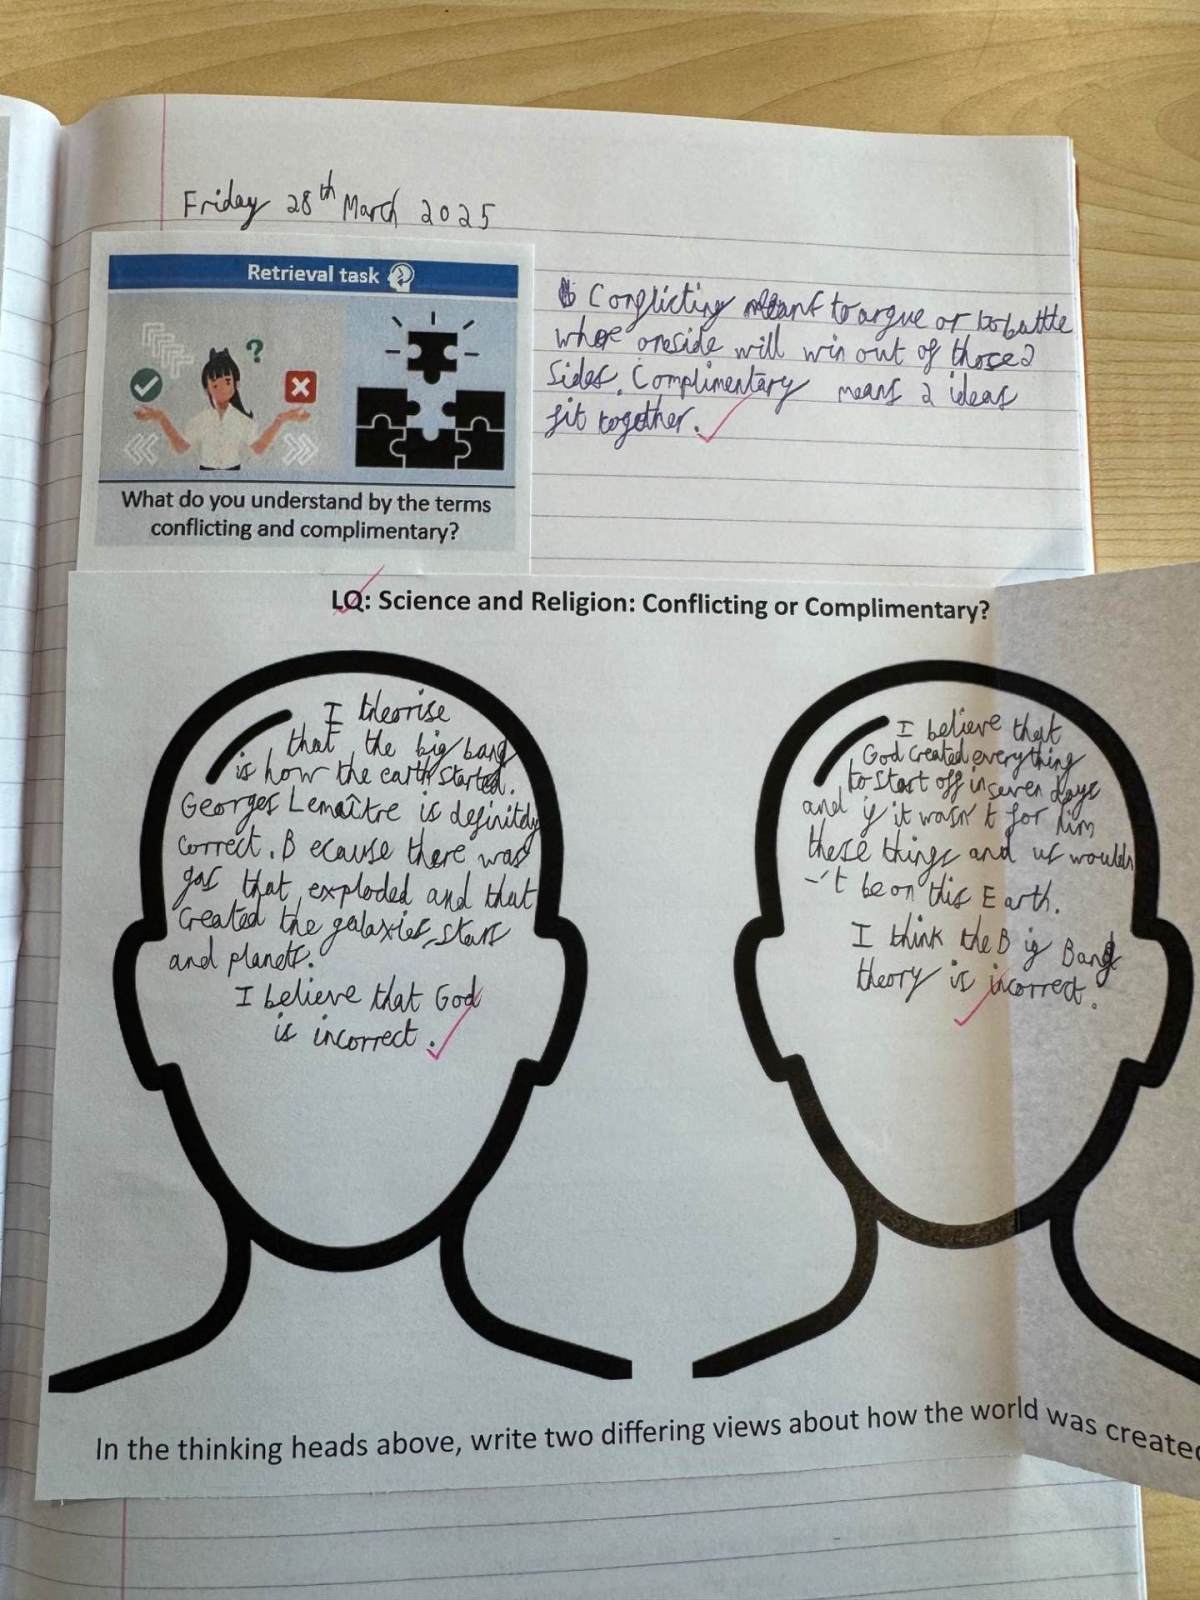 Friday 28th March 2025
Retrieval task
?
What do you understand by the terms
conflicting and complimentary?
Conflicting meant to argue or to battle
where oneside will win out of those 2
sides. Complimentary means 2 ideas
fit together.
LQ: Science and Religion: Conflicting or Complimentary?
I theorise
that the big bang
is how the earth started.
Georges Lemaître is definitely
correct. Because there was
gas that exploded and that
created the galaxies, stars
and planets.
I believe that God
is incorrect.
I believe that
God created everything
to start off in seven days
and if it wasn't for him
these things and us wouldn
-'t be on this Earth.
I think the Big Bang
theory is incorrect.
In the thinking heads above, write two differing views about how the world was created